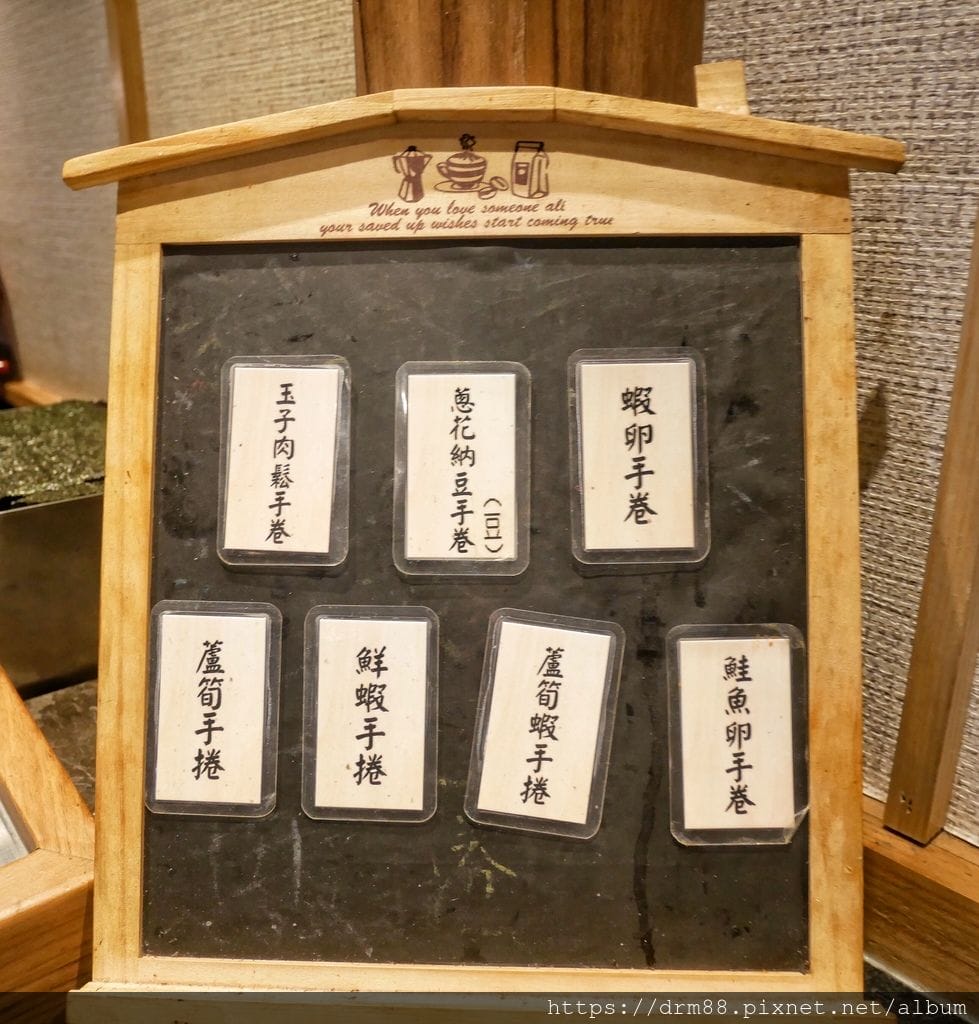 When you love someone all
your saved up wishes start coming true
玉子肉鬆手巻
蔥花納豆手巻
(一豆)
蝦卵手巻
蘆筍手捲
鮮蝦手捲
蘆筍蝦手捲
鮭魚卵手巻
https://drm88.pixnet.net/album